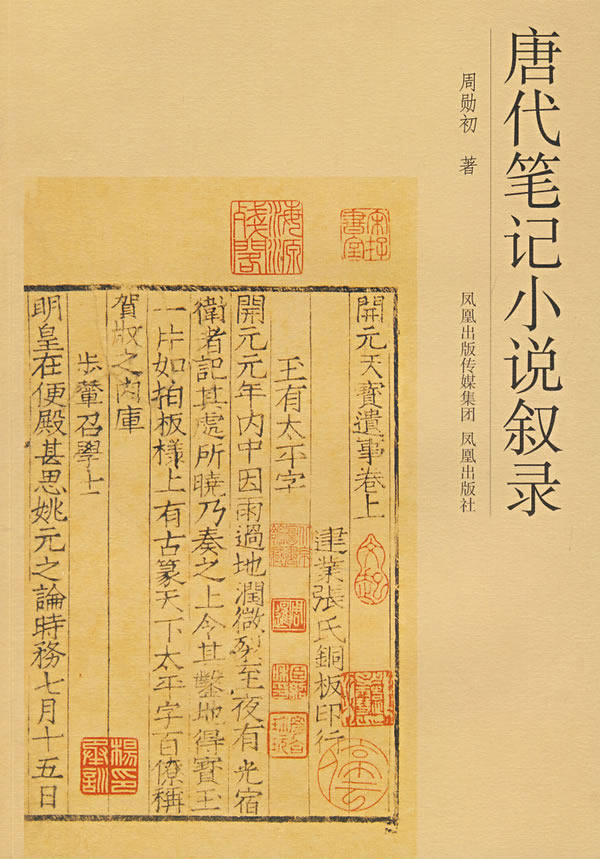 唐代笔记小说叙录
周勋初 著
凤凰出版传媒集团 凤凰出版社
宋存書室
海源殘閣
開元天寶遺事卷上
建業張氏銅板印行
王有太平字
開元元年内中因雨過地潤微裂至夜有光宿
衛者記其處所曉乃奏之上令其鑿地得寶玉
一片如拍板樣上有古篆天下太平字百僚稱
賀収之内庫
步輦召學士
明皇在便殿甚思姚元之論時務七月十五日
楊印承訓